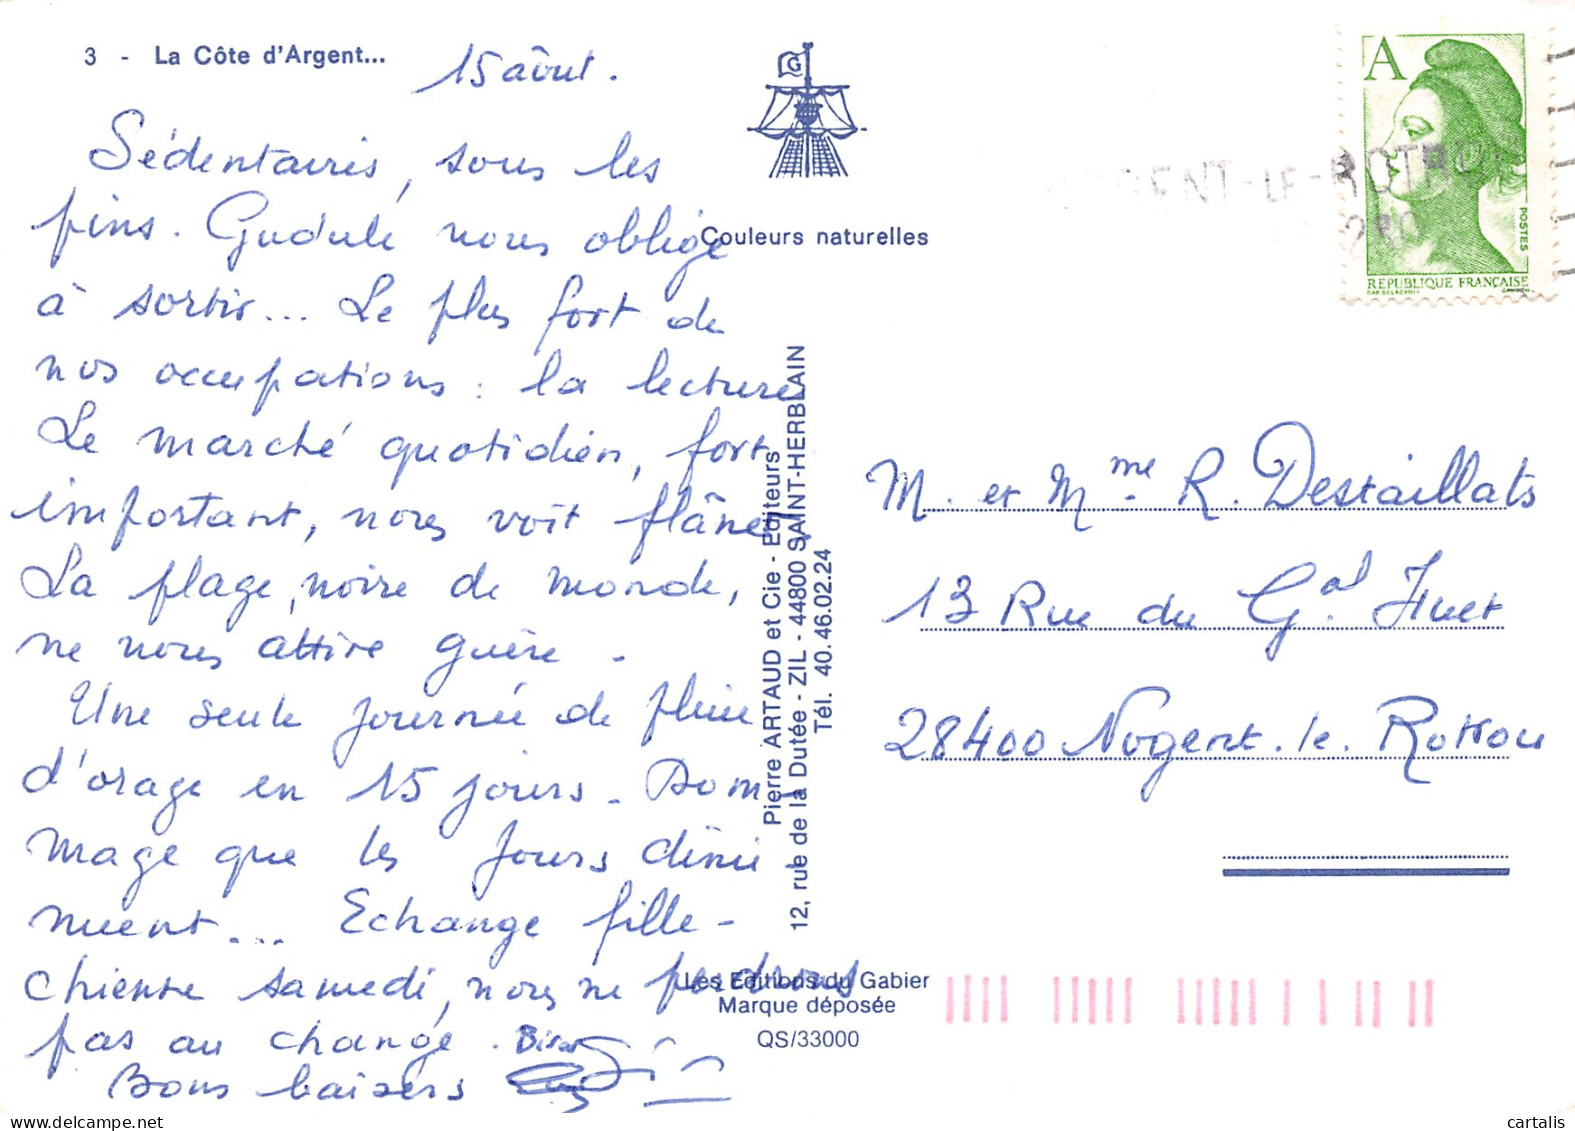 3 - La Côte d'Argent...
15 aôut.
Sédentaires, sous les
pins. Gudule nous oblige
à sortir... Le plus fort de
nos occupations : la lecture
Le marché quotidien, fort
important, nous voit flâner
La plage, noire de monde,
ne nous attire guère.
Une seule journée de pluie
d'orage en 15 jours. Dom-
mage que les jours dimi-
nuent... Echange fille-
chienne samedi, nous ne perdrons
pas au change.
Bons baisers
Couleurs naturelles
Pierre ARTAUD et Cie - Editeurs
12, rue de la Dutée - ZIL - 44800 SAINT-HERBLAIN
Tél. 40.46.02.24
Les Editions du Gabier
Marque déposée
QS/33000
A
POSTES
REPUBLIQUE FRANÇAISE
GENT-LE-ROTRO
M. et Mme R. Destaillats
13 Rue du Gal Huet
28400 Nogent.le.Rotrou
cartalis